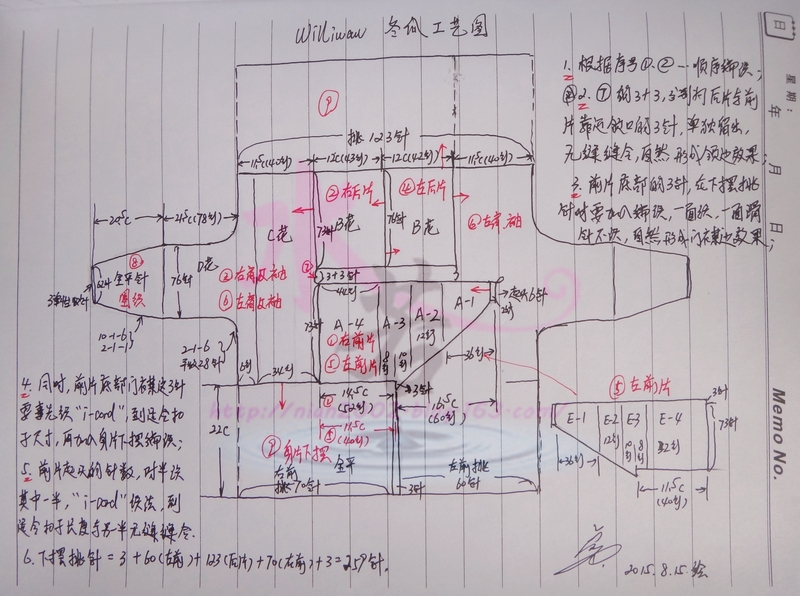 Williwaw 冬瓜工艺图
日
星期:
年 月 日
Memo No.
1. 根据序号①、②…顺序编织;
2. ⑦的3+3,分别打后片与前
片靠近领口的3针,单独留出,
无缝缝合,自然形成领边效果;
3. 前片底部的3针,在下摆挑
针时要加入编织,一面织,一面滑
针不织,自然形成门襟边效果;
⑨
挑123针
11.5C(40针)
12C(43针)
12C(42针)
11.5C(40针)
②右后片
④左后片
B花
B花
73针
76针
C花
⑥左肩袖
⑦
3+3针
3
D花
76针
⑧
全平针
圈织
62针
10-1-6
2-1-1
2-1-6
平收28针
6针
34针
73针
A-4
A-3
A-2
A-1
12针
①右前片
⑤左前片
8针
10针
36针
起头6针
2针
3针
14.5C
(52针)
11.5C
(40针)
16.5C
(60针)
22C
⑨身片下摆
右前
挑70针
全平
左前挑
60针
3针
⑤左前片
E-1
E-2
E-3
E-4
12针
10针
8针
36针
3针
73针
11.5C
(40针)
4. 同时,前片底部门襟边3针
要单元织“i-cord”,到适合扣
子尺寸,再加入身片下摆编织;
5. 前片起头的针数,对半织
其中一半,“i-cord”织法,到
适合扣子长度与另一半无缝缝合.
6. 下摆挑针=3+60(左前)+123(后片)+70(右前)+3=259针.
2015.8.15.绘